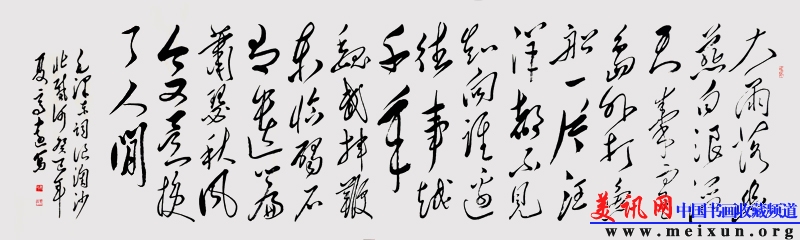 大雨落幽
燕白浪滔
天秦皇
島外打魚
船一片汪
洋都不見
知向誰邊
往事越
千年
魏武揮鞭
東臨碣石
有遺篇
蕭瑟秋風
今又是換
了人間
毛澤東詞浪淘沙
北戴河癸巳年
夏
美讯网 中国书画收藏频道
www.meixun.org